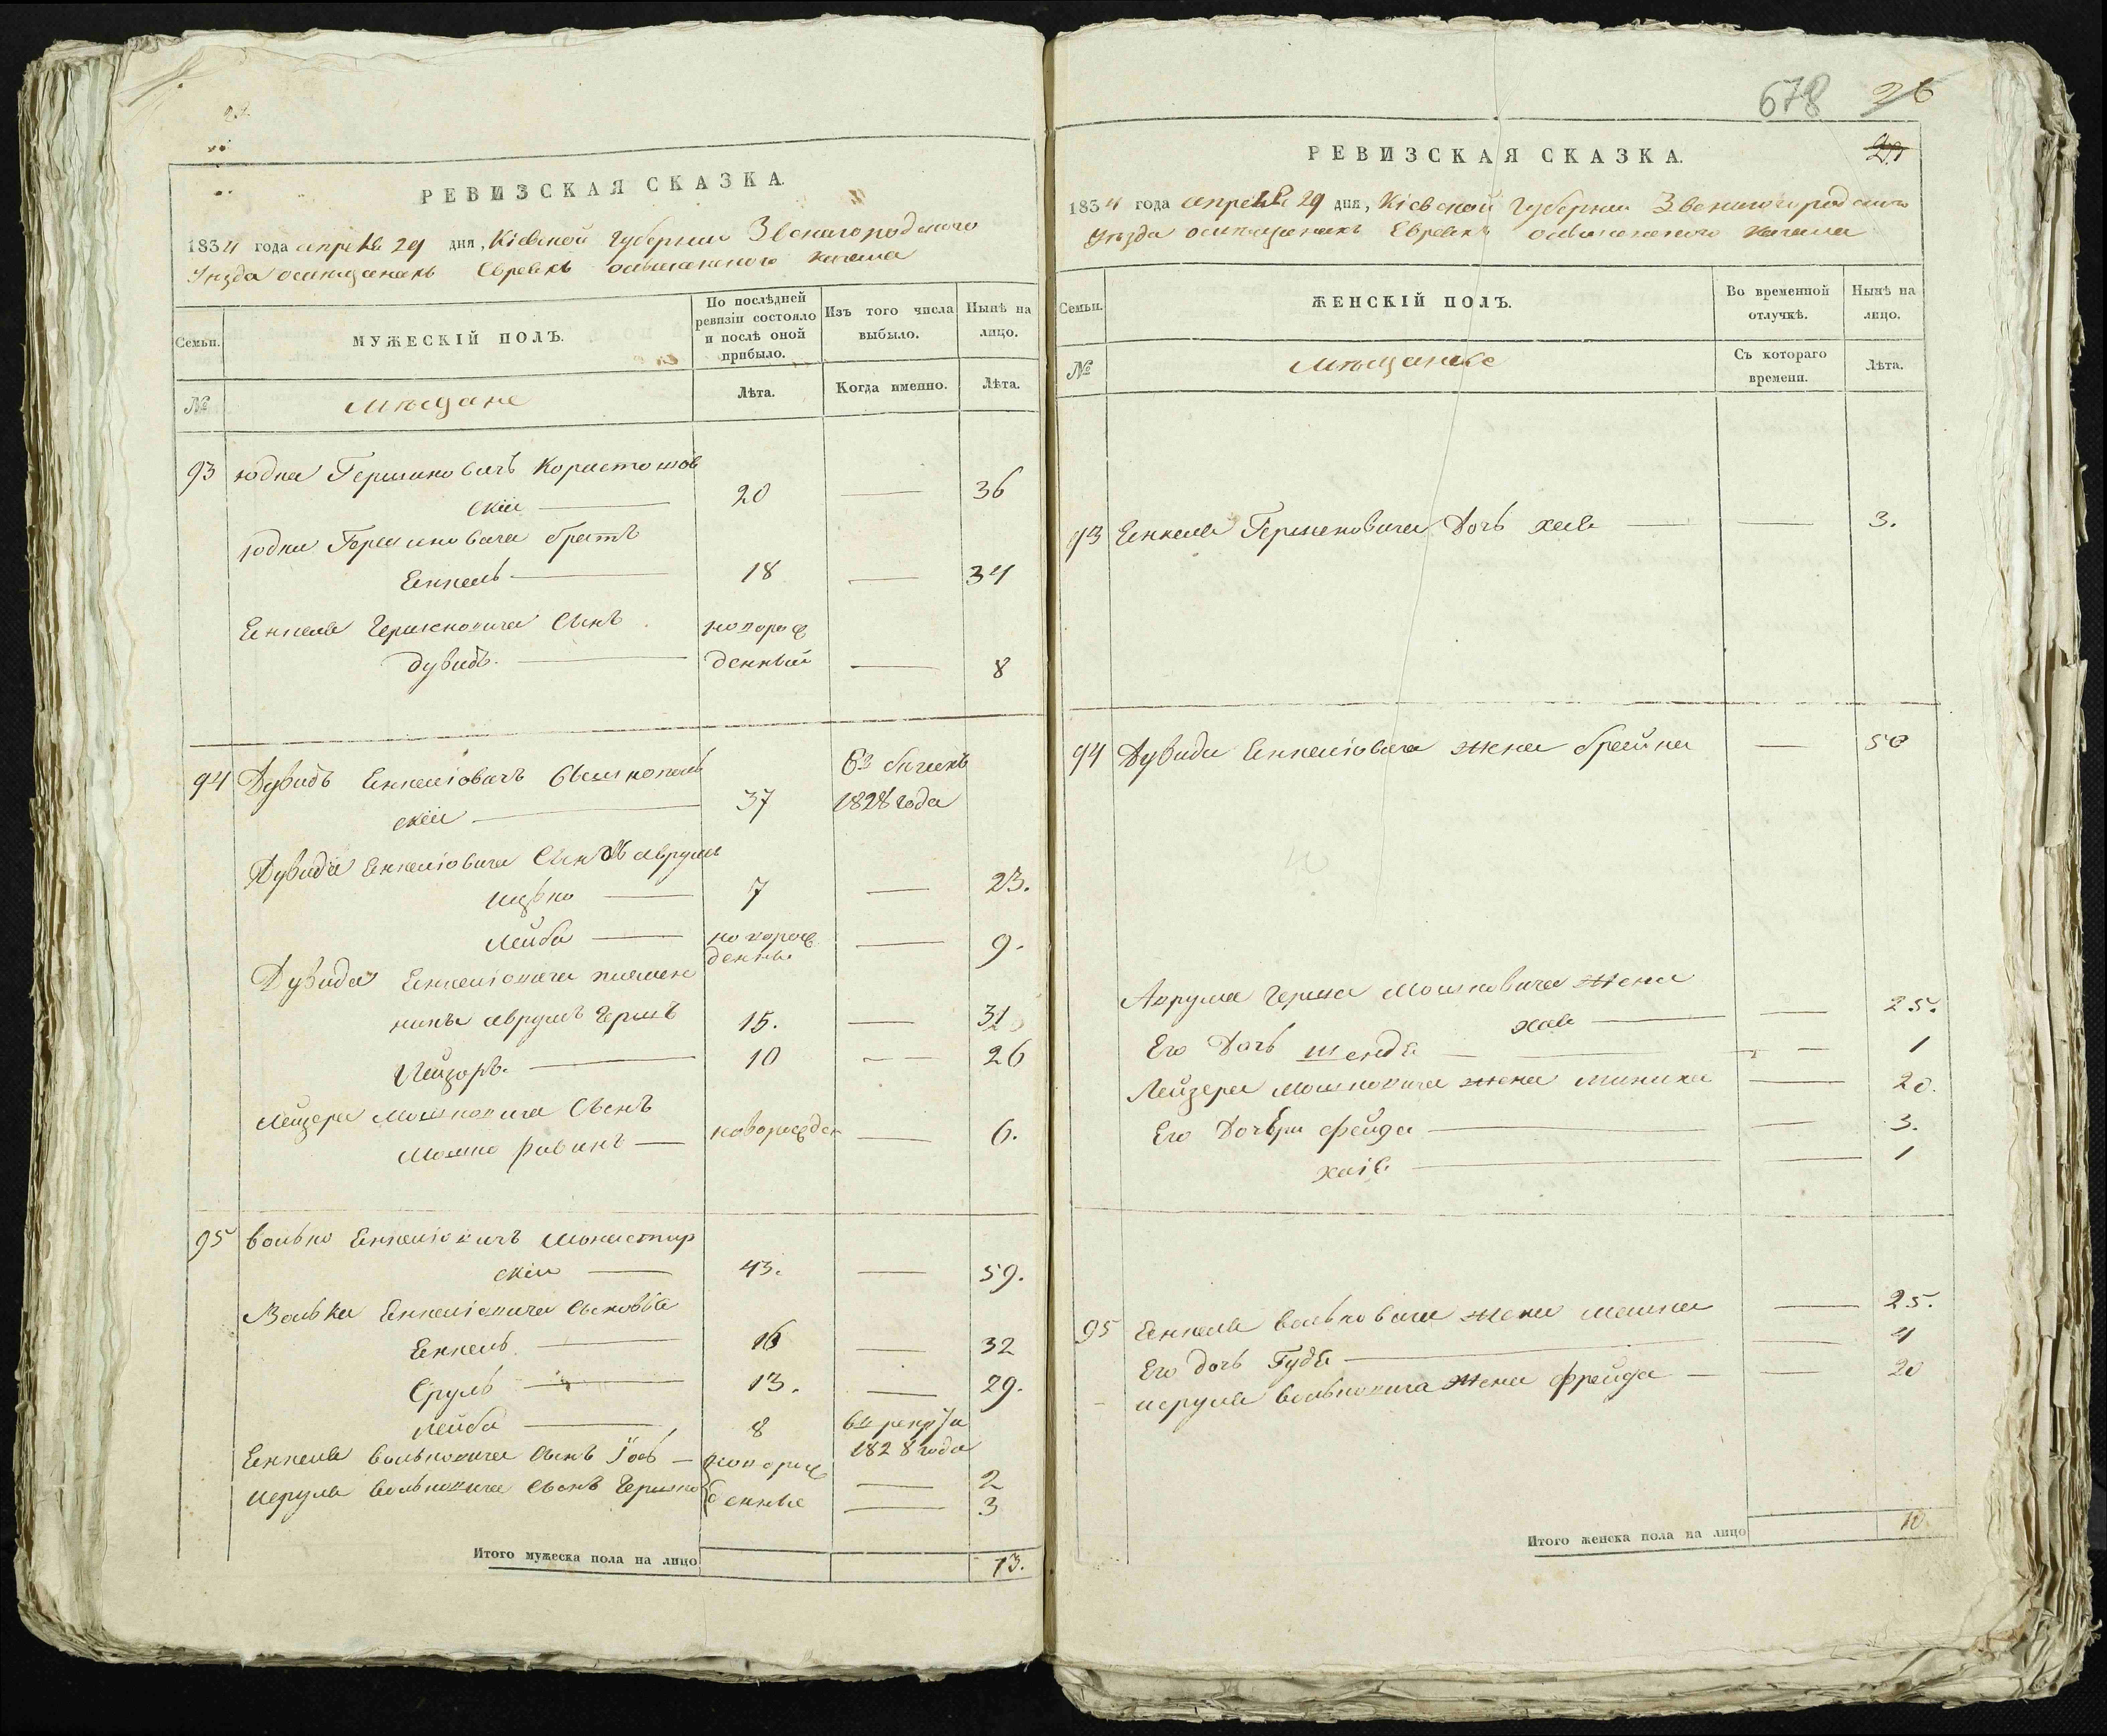 РЕВИЗСКАЯ СКАЗКА.
1834 года апреля 29 дня, Кіевской Губернии Звенигородского
Уезда о мещанахъ Евреяхъ кагала
Семьи.
МУЖЕСКІЙ ПОЛЪ.
По послѣдней ревизіи состояло и послѣ оной прибыло.
Изъ того числа выбыло.
Нынѣ на лицо.
№
Мещане
Лѣта.
Когда именно.
Лѣта.
93 Юдка Гершковичъ
скій — 20 — 36
Юдки Гершковича братъ
Енкель — 18 — 34
Енкеля Гершковича сынъ новорож
Дувидъ — денный — 8
94 Дувидъ Енкеліовичъ
скій — 37 1828 года
Дувида Енкеліовича сынъ Аврумъ
Ицко — 7 — 23.
Лейба — новорож денны — 9.
Дувида Енкеліовича племен
ники Аврумъ Гершъ 15. — 31
Лейзоръ — 10 — 26
Лейзера Мошковича сынъ
Мошко — новорожден — 6.
95 Волько Енкеліовичъ Монастир
скій — 43. — 59.
Волька Енкеліовича сыновья
Енкель — 16 — 32
Сруль — 13. — 29.
Лейба — 8 в рекруты 1828 года
Енкеля Вольковича сынъ Іось — новорож — 2
Исруля Вольковича сынъ Гершко денные — 3
Итого мужеска пола на лицо 13.
678 26
РЕВИЗСКАЯ СКАЗКА.
1834 года апреля 29 дня, Кіевской Губернии Звенигородского
Уезда о мещанахъ Евреяхъ кагала
Семьи.
ЖЕНСКІЙ ПОЛЪ.
Во временной отлучкѣ.
Нынѣ на лицо.
№
Мещанке
Съ котораго времени.
Лѣта.
93 Енкеля Гершковича дочь Хая — — 3.
94 Дувида Енкеліовича жена Брейна — 50
Аврума Герша Мошковича жена
Хая — — 25.
Его дочь Шендя — — 1
Лейзера Мошковича жена — 20.
Его дочери Фейга — — 3.
— — 1
95 Енкеля Вольковича жена — 25.
Его дочь Гудя — — 4
Исруля Вольковича жена Фрейда — — 20
Итого женска пола на лицо 10.